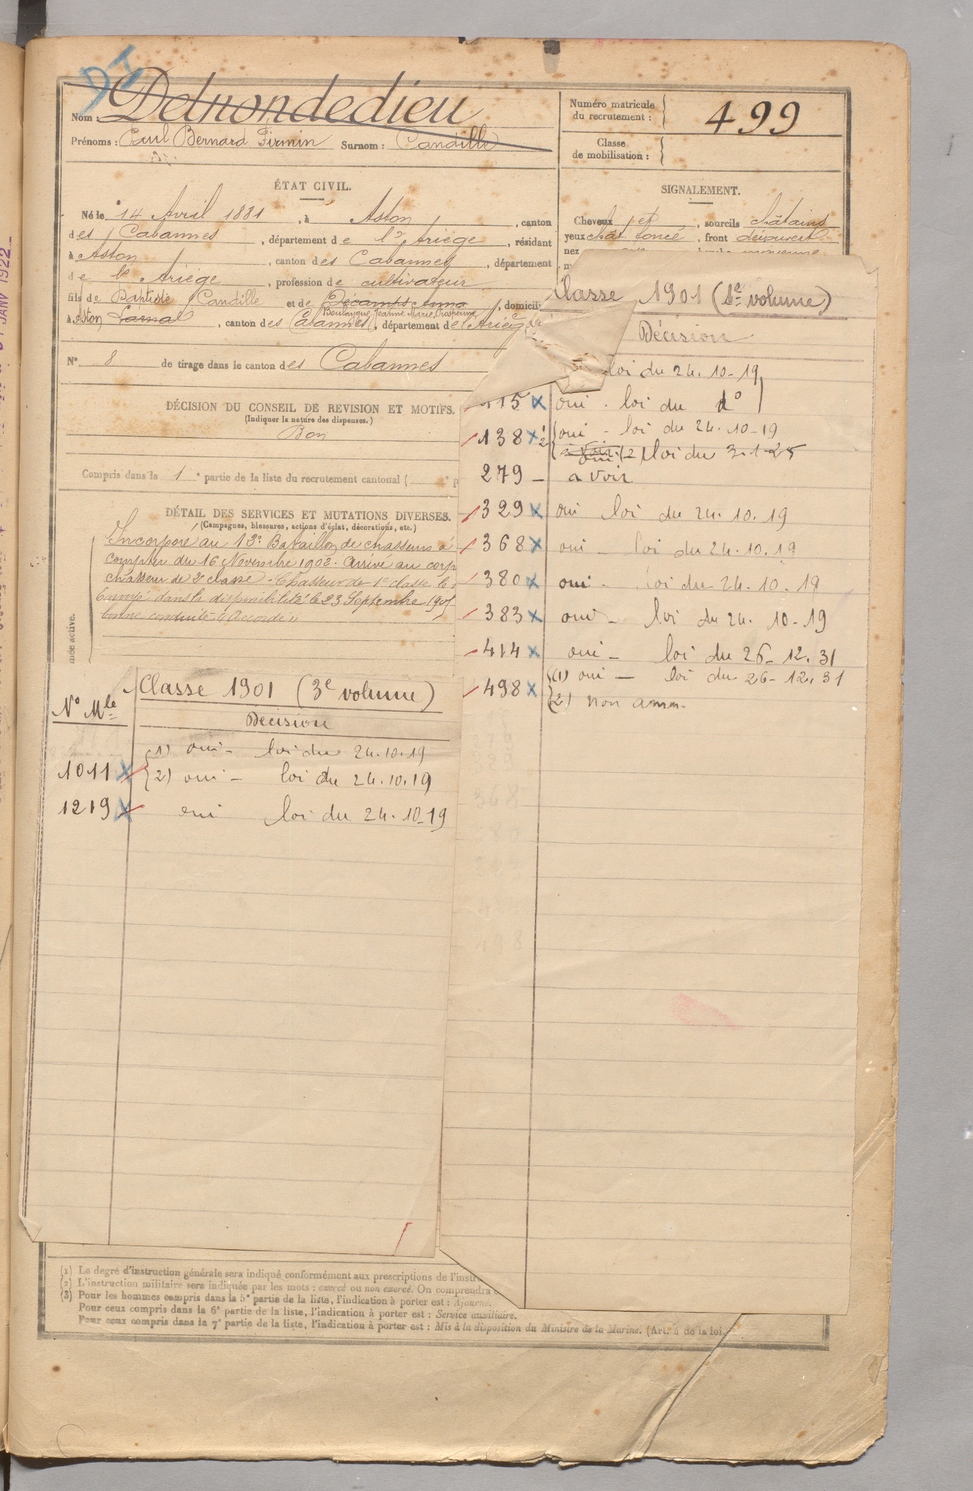 DI
Nom : Delrondedieu
Prénoms : Paul Bernard Firmin Surnom : Candille
Numéro matricule du recrutement : 499
Classe de mobilisation :
ÉTAT CIVIL.
Né le 14 Avril 1881, à Aston, canton
des Cabannes, département de l'Ariège, résidant
à Aston, canton des Cabannes, département
de l'Ariège, profession de cultivateur
fils de Baptiste Candille et de Decamps Anna, domicil
Boulangé Jeanne Marie
à Aston Larnat, canton des Cabannes, département de l'Ariège
SIGNALEMENT.
Cheveux et, sourcils châtains
yeux chat. foncé, front découvert
nez moyenne
N° 8 de tirage dans le canton des Cabannes
DÉCISION DU CONSEIL DE REVISION ET MOTIFS.
(Indiquer la nature des dispenses.)
Bon
Compris dans la 1e partie de la liste du recrutement cantonal (
DÉTAIL DES SERVICES ET MUTATIONS DIVERSES.
(Campagnes, blessures, actions d'éclat, décorations, etc.)
Incorporé au 13e Bataillon de chasseurs à
compter du 16 Novembre 1902. Arrivé au corps
chasseur de 2e classe. Chasseur de 1e classe le
Envoyé dans la disponibilité le 23 Septembre 1905
bonne conduite "Accordé"
Classe 1901 (1e volume)
Décision
loi du 24.10-19
115 x oui - loi du do
138 x oui - loi du 24.10-19
(2) loi du 3-1-25
279 - a voir
329 x oui loi du 24.10.19
368 x oui - loi du 24.10.19
380 x oui - loi du 24.10.19
383 x oui - loi du 24.10-19
414 x oui - loi du 26-12.31
498 x (1) oui - loi du 26-12.31
(2) non amn.
Classe 1901 (3e volume)
N° Mle
Décision
(1) oui - loi du 24.10.19
1011 x (2) oui - loi du 24.10.19
1219 x oui loi du 24.10-19
(1) Le degré d'instruction générale sera indiqué conformément aux prescriptions de l'instr
(2) L'instruction militaire sera indiquée par les mots : exercé ou non exercé. On comprendra
(3) Pour les hommes compris dans la 5e partie de la liste, l'indication à porter est : Ajourné.
Pour ceux compris dans la 6e partie de la liste, l'indication à porter est : Service auxiliaire.
Pour ceux compris dans la 7e partie de la liste, l'indication à porter est : Mis à la disposition du Ministre de la Marine. (Art. 4 de la loi.